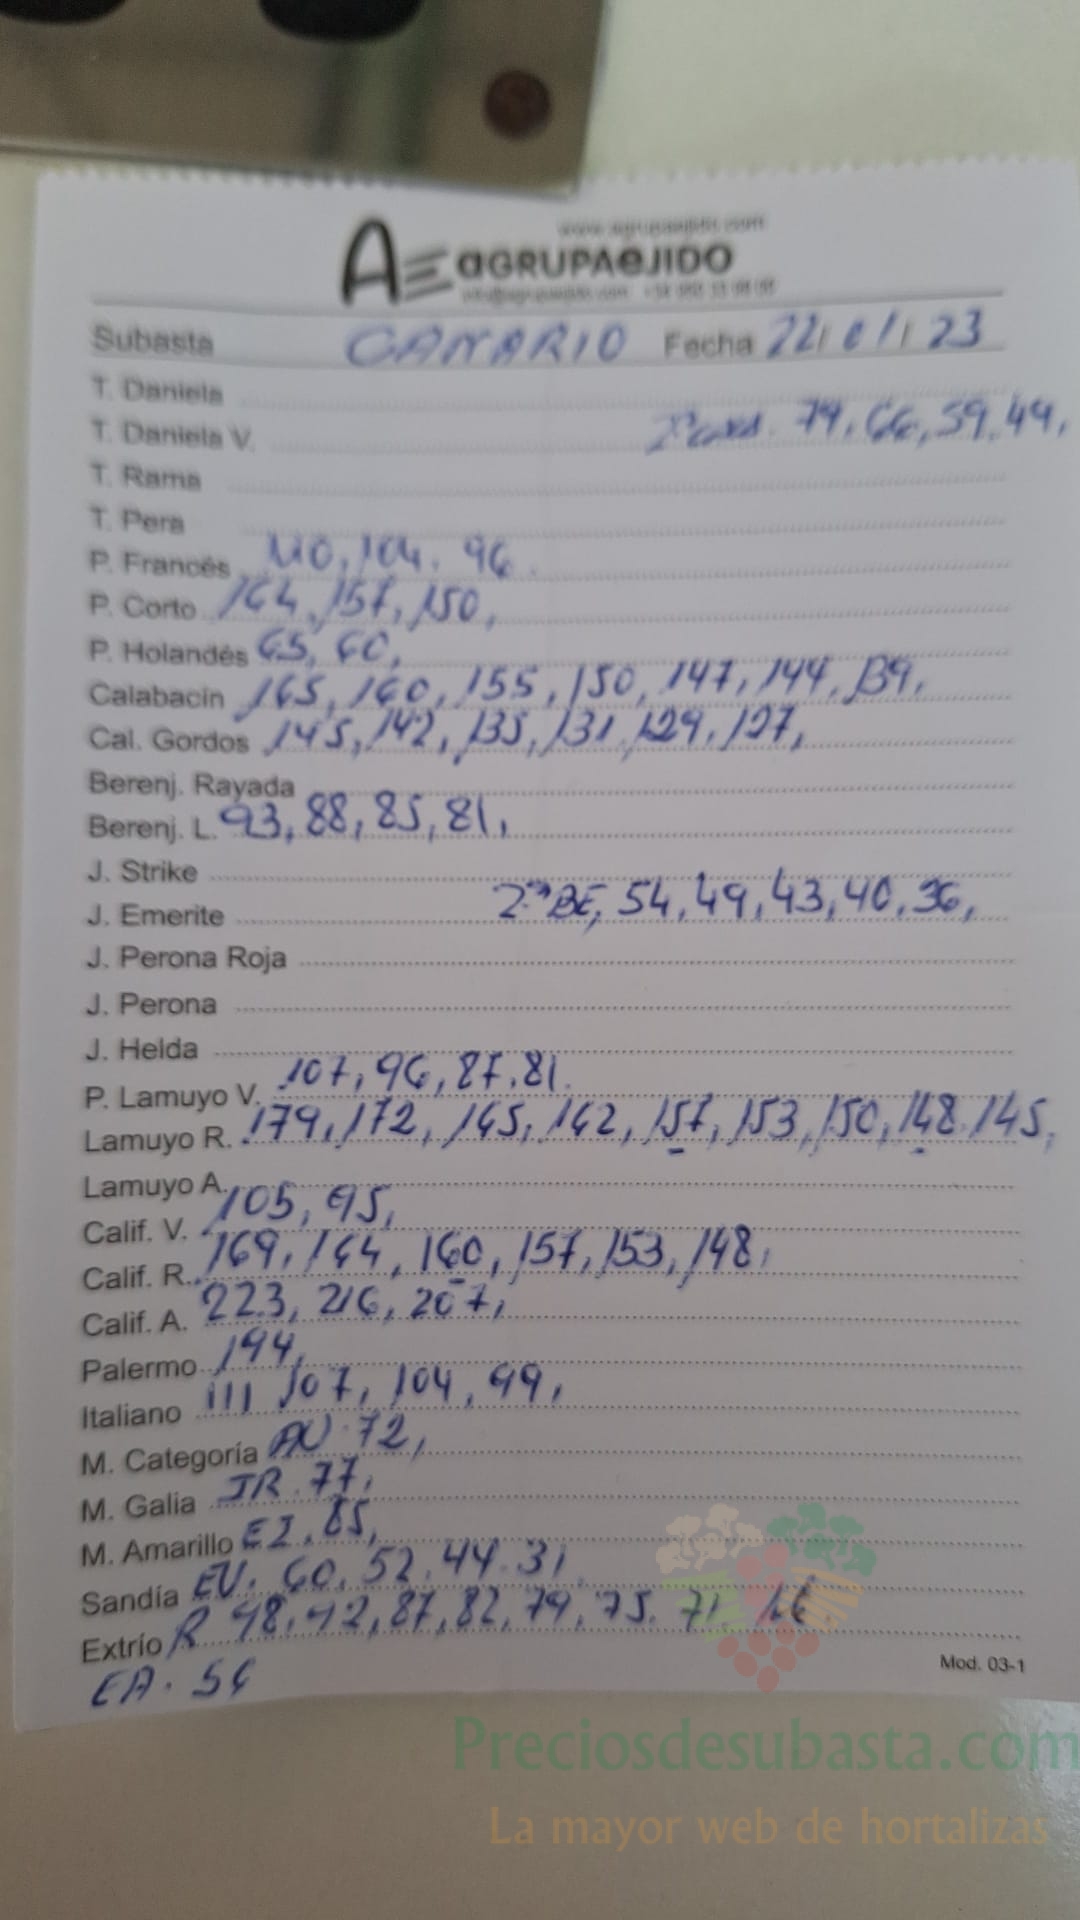 www.agrupaejido.com
AE aGRUPAeJIDO
Subasta CANARIO Fecha 22/ 01/ 23
T. Daniela
T. Daniela V. 79, 66, 59, 49,
T. Rama
T. Pera
P. Francés 110, 104. 96.
P. Corto 164, 157, 150,
P. Holandés 65, 60,
Calabacín 165, 160, 155, 150, 147, 144, 139,
Cal. Gordos 145, 142, 135, 131, 129, 127,
Berenj. Rayada
Berenj. L. 93, 88, 85, 81,
J. Strike
J. Emerite 2ª BE, 54, 49, 43, 40, 36,
J. Perona Roja
J. Perona
J. Helda
P. Lamuyo V. 107, 96, 87, 81.
Lamuyo R. 179, 172, 165, 162, 157, 153, 150, 148. 145,
Lamuyo A.
Calif. V. 105, 95,
Calif. R. 169, 164, 160, 157, 153, 148,
Calif. A. 223, 216, 207,
Palermo 194,
Italiano 111 107, 104, 99,
M. Categoría AV. 72,
M. Galia JR. 77,
M. Amarillo EI. 85,
Sandía EV. 60, 52, 44. 31
Extrío R 98, 92, 87, 82, 79, 75. 71. 66.
EA. 56
Mod. 03-1
Preciosdesubasta.com
La mayor web de hortalizas